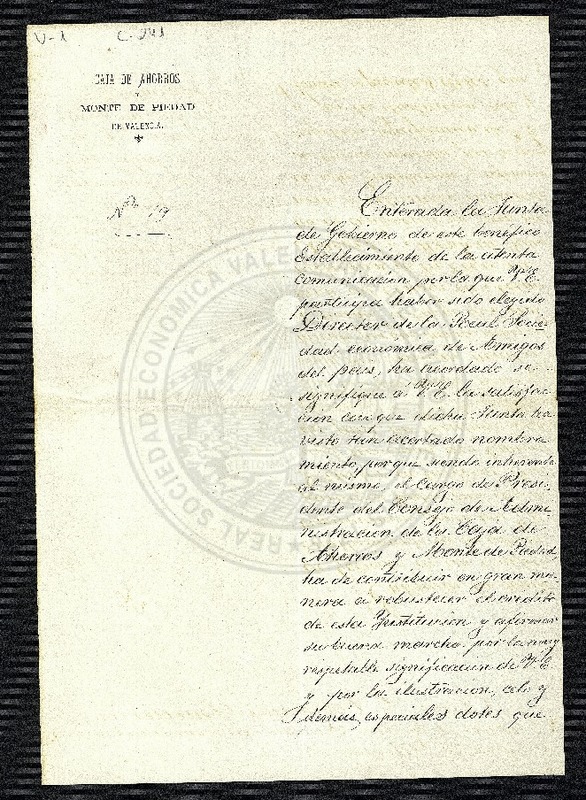 V-1 C-241
CAJA DE AHORROS
Y
MONTE DE PIEDAD
DE VALENCIA.
Nº 19
Enterada la Junta
de Gobierno de este benéfico
Establecimiento de la atenta
comunicacion por la que V. E.
participa haber sido elegido
Director de la Real Socie-
dad económica de Amigos
del pais, ha acordado se
signifique a V. E. la satisfac-
ción con que dicha Junta ha
visto tan acertado nombra-
miento, porque siendo inherente
al mismo, el cargo de Presi-
dente del Consejo de Admi-
nistracion de la Caja de
Ahorros y Monte de Piedad
ha de contribuir en gran ma-
nera a robustecer el crédito
de esta Institucion y afirmar
su buena marcha por la muy
respetable significacion de V. E.
y por la ilustracion, celo y
demás especiales dotes que
REAL SOCIEDAD ECONOMICA